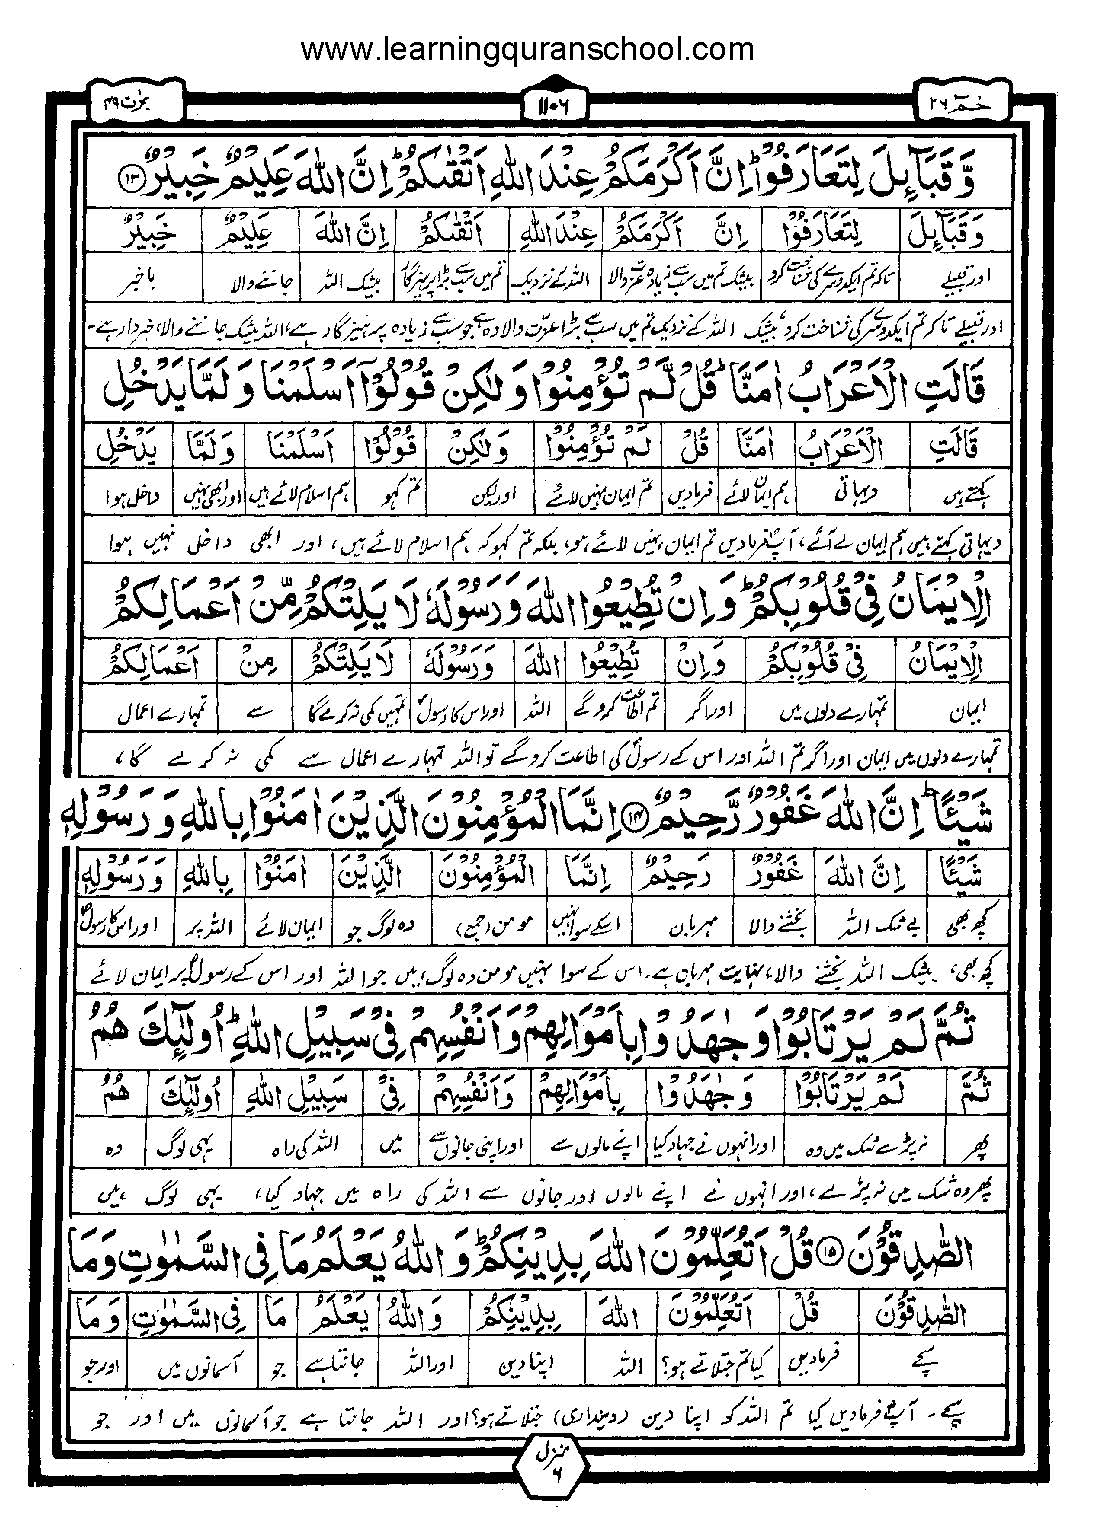 www.learningquranschool.com
حٰمٓ ٢٦ ١١٠٦ حجرٰت ٤٩
وَّقَبَآئِلَ لِتَعَارَفُوْا ؕ اِنَّ اَكْرَمَكُمْ عِنْدَ اللّٰهِ اَتْقٰىكُمْ ؕ اِنَّ اللّٰهَ عَلِيْمٌ خَبِيْرٌ ۝١٣
وَقَبَآئِلَ لِتَعَارَفُوْا اِنَّ اَكْرَمَكُمْ عِنْدَ اللّٰهِ اَتْقٰىكُمْ اِنَّ اللّٰهَ عَلِيْمٌ خَبِيْرٌ
اور قبیلے تاکہ تم ایکدوسرے کی شناخت کرو بیشک تم میں سب سے زیادہ عزت والا اللہ کے نزدیک تم میں سب سے بڑا پرہیزگار بیشک اللہ جاننے والا باخبر
اور قبیلے تاکہ تم ایکدوسرے کی شناخت کرو، بیشک اللہ کے نزدیک تم میں سب سے بڑا عزت والا وہ ہے جو سب سے زیادہ پرہیزگار ہے، اللہ بیشک جاننے والا، خبردار ہے۔
قَالَتِ الْاَعْرَابُ اٰمَنَّا ؕ قُلْ لَّمْ تُؤْمِنُوْا وَلٰكِنْ قُوْلُوْٓا اَسْلَمْنَا وَلَمَّا يَدْخُلِ
قَالَتِ الْاَعْرَابُ اٰمَنَّا قُلْ لَمْ تُؤْمِنُوْا وَلٰكِنْ قُوْلُوْٓا اَسْلَمْنَا وَلَمَّا يَدْخُلِ
کہتے ہیں دیہاتی ہم ایمان لائے فرمادیں تم ایمان نہیں لائے اور لیکن تم کہو ہم اسلام لائے ہیں اور ابھی نہیں داخل ہوا
دیہاتی کہتے ہیں ہم ایمان لے آئے، آپؐ فرمادیں تم ایمان نہیں لائے ہو، بلکہ تم کہو کہ ہم اسلام لائے ہیں، اور ابھی داخل نہیں ہوا
الْاِيْمَانُ فِيْ قُلُوْبِكُمْ ؕ وَاِنْ تُطِيْعُوا اللّٰهَ وَرَسُوْلَهٗ لَا يَلِتْكُمْ مِّنْ اَعْمَالِكُمْ
الْاِيْمَانُ فِيْ قُلُوْبِكُمْ وَاِنْ تُطِيْعُوا اللّٰهَ وَرَسُوْلَهٗ لَا يَلِتْكُمْ مِنْ اَعْمَالِكُمْ
ایمان تمہارے دلوں میں اور اگر تم اطاعت کروگے اللہ اور اس کا رسولؐ تمہیں کمی نہ کرے گا سے تمہارے اعمال
تمہارے دلوں میں ایمان اور اگر تم اللہ اور اس کے رسولؐ کی اطاعت کروگے تو اللہ تمہارے اعمال سے کمی نہ کرے گا،
شَيْـًٔا ؕ اِنَّ اللّٰهَ غَفُوْرٌ رَّحِيْمٌ ۝١٤ اِنَّمَا الْمُؤْمِنُوْنَ الَّذِيْنَ اٰمَنُوْا بِاللّٰهِ وَرَسُوْلِهٖ
شَيْـًٔا اِنَّ اللّٰهَ غَفُوْرٌ رَحِيْمٌ اِنَّمَا الْمُؤْمِنُوْنَ الَّذِيْنَ اٰمَنُوْا بِاللّٰهِ وَرَسُوْلِهٖ
کچھ بھی بے شک اللہ بخشنے والا مہربان اسکے سوا نہیں مومن (جمع) وہ لوگ جو ایمان لائے اللہ پر اور اس کا رسولؐ
کچھ بھی، بیشک اللہ بخشنے والا، نہایت مہربان ہے، اس کے سوا نہیں مومن وہ لوگ ہیں جو اللہ اور اس کے رسولؐ پر ایمان لائے
ثُمَّ لَمْ يَرْتَابُوْا وَجٰهَدُوْا بِاَمْوَالِهِمْ وَاَنْفُسِهِمْ فِيْ سَبِيْلِ اللّٰهِ ؕ اُولٰٓئِكَ هُمُ
ثُمَّ لَمْ يَرْتَابُوْا وَجٰهَدُوْا بِاَمْوَالِهِمْ وَاَنْفُسِهِمْ فِيْ سَبِيْلِ اللّٰهِ اُولٰٓئِكَ هُمُ
پھر نہ پڑے شک میں وہ اور انہوں نے جہاد کیا اپنے مالوں سے اور اپنی جانوں سے میں اللہ کی راہ یہی لوگ وہ
پھر وہ شک میں نہ پڑے، اور انہوں نے اپنے مالوں اور جانوں سے اللہ کی راہ میں جہاد کیا، یہی لوگ ہیں
الصّٰدِقُوْنَ ۝١٥ قُلْ اَتُعَلِّمُوْنَ اللّٰهَ بِدِيْنِكُمْ ؕ وَاللّٰهُ يَعْلَمُ مَا فِي السَّمٰوٰتِ وَمَا
الصّٰدِقُوْنَ قُلْ اَتُعَلِّمُوْنَ اللّٰهَ بِدِيْنِكُمْ وَاللّٰهُ يَعْلَمُ مَا فِي السَّمٰوٰتِ وَمَا
سچے فرمادیں کیا تم جتلاتے ہو؟ اللہ اپنا دین اور اللہ جانتا ہے جو آسمانوں میں اور جو
سچے۔ آپؐ فرمادیں کیا تم اللہ کو اپنا دین (دینداری) جتلاتے ہو؟ اور اللہ جانتا ہے جو آسمانوں میں اور جو
منزل ٦